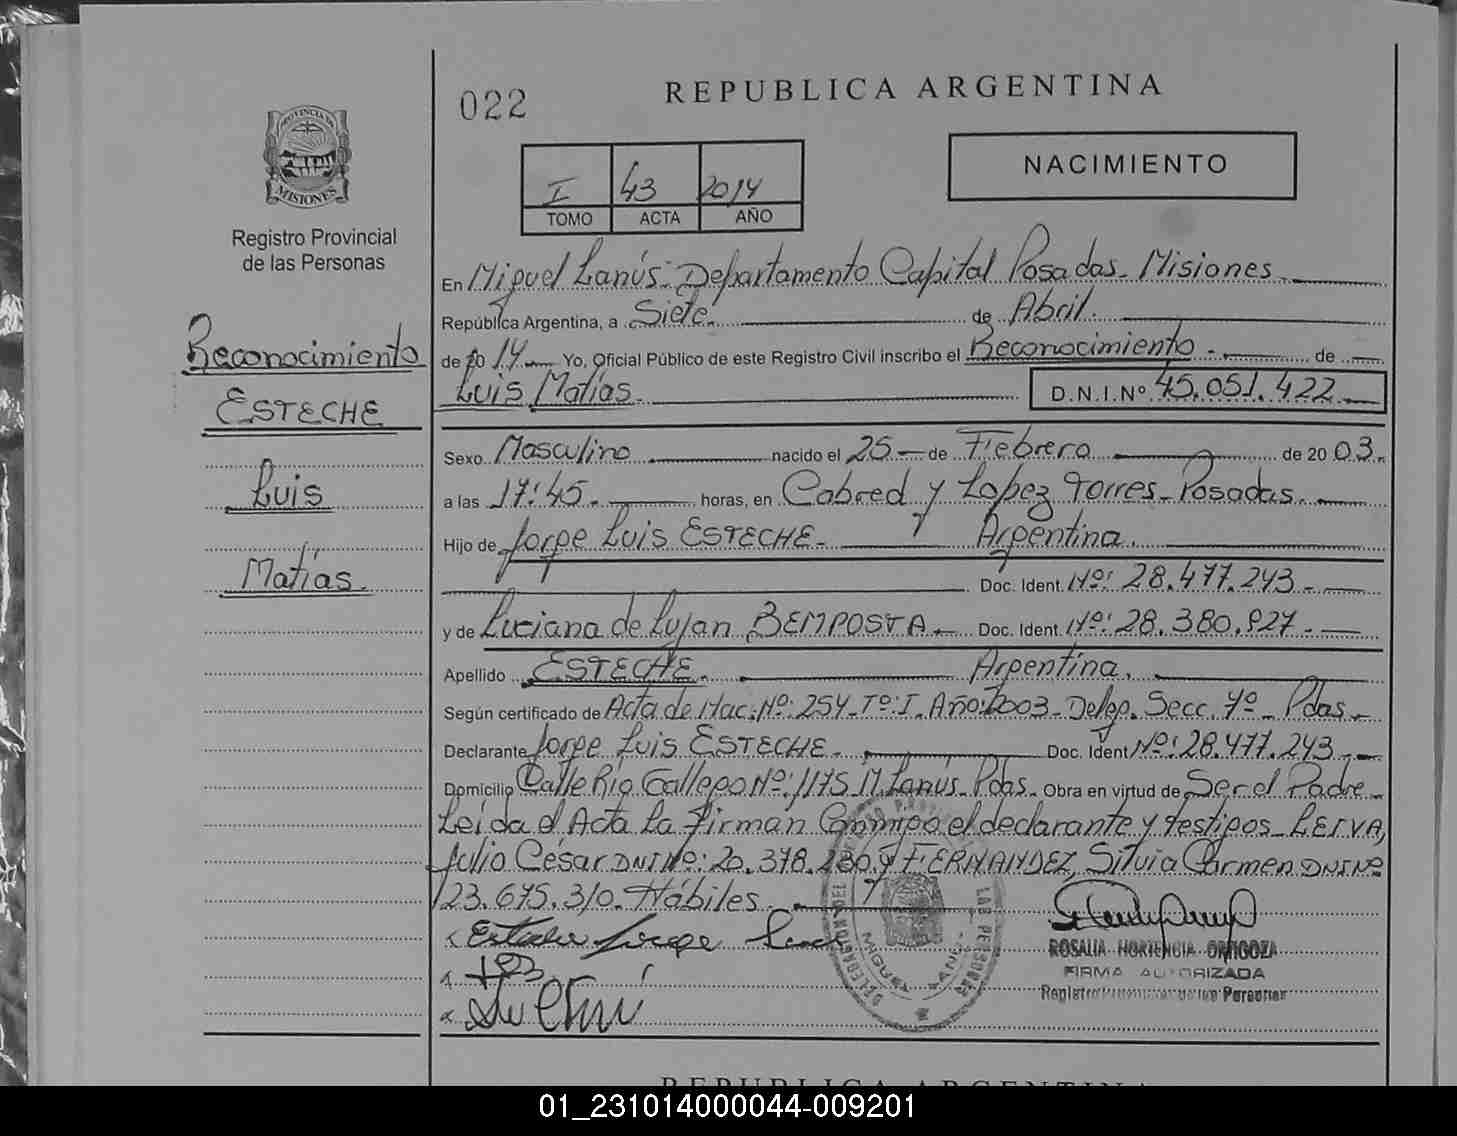 022
REPUBLICA ARGENTINA
PROVINCIA DE
MISIONES
Registro Provincial
de las Personas
I 43 2014
TOMO ACTA AÑO
NACIMIENTO
Reconocimiento
ESTECHE
Luis
Matías.
En Miguel Lanús- Departamento Capital Posadas- Misiones
República Argentina, a Siete. de Abril.
de 2014 Yo, Oficial Público de este Registro Civil inscribo el Reconocimiento - de
Luis Matías. D.N.I.Nº 45.051.422
Sexo Masculino nacido el 25 de Febrero de 2003.
a las 17:45. horas, en Cabred y Lopez Torres- Posadas.
Hijo de Jorge Luis ESTECHE- Argentina.
Doc. Ident. Nº: 28.477.243-
y de Luciana de Lujan BEMPOSTA- Doc. Ident. Nº: 28.380.827-
Apellido ESTECHE. Argentina.
Según certificado de Acta de Nac. Nº: 254- Tº: I. Año: 2003- Deleg. Secc. 7º- Pdas-
Declarante Jorge Luis ESTECHE- Doc. Ident Nº: 28.477.243-
Domicilio Calle Río Gallego Nº: 1175 M. Lanús- Pdas. Obra en virtud de Ser el Padre-
Leída el Acta la firman Conmigo el declarante y testigos- LEIVA,
Julio César DNI Nº: 20.378.230 y FERNANDEZ, Silvia Carmen DNI Nº
23.675.310. Hábiles.
Esteche Jorge Luis
DELEGACION DEL REGISTRO PROVINCIAL DE LAS PERSONAS
MIGUEL LANUS
ROSALIA HORTENCIA ORTIGOZA
FIRMA AUTORIZADA
Registro Provincial de las Personas
REPUBLICA ARGENTINA
01_231014000044-009201